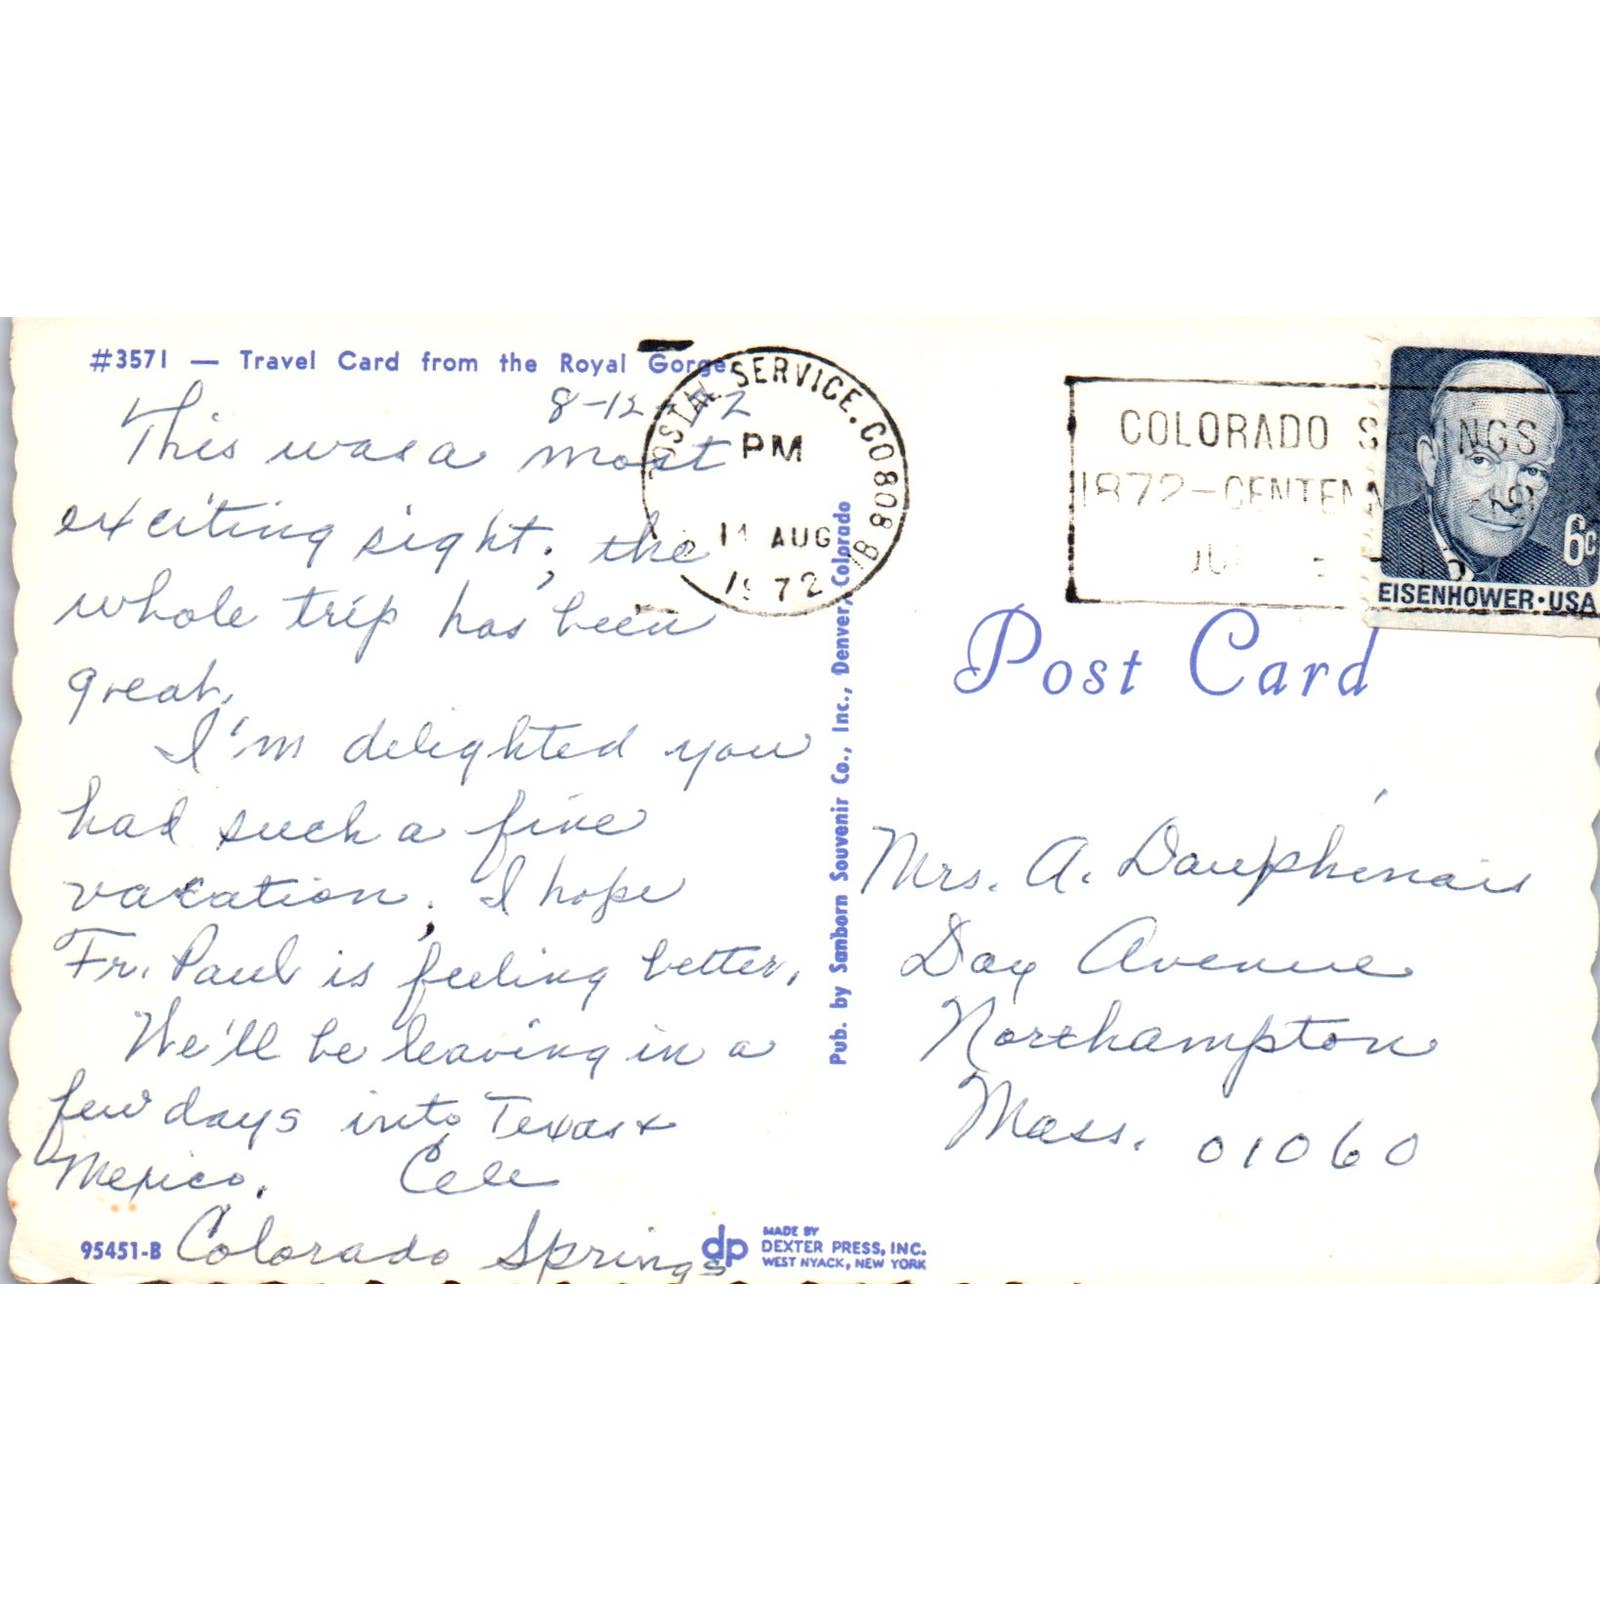 #3571 — Travel Card from the Royal Gorge
8-12-72
This was a most
exciting sight; the
whole trip has been
great.
I'm delighted you
had such a fine
vacation; I hope
Fr. Paul is feeling better.
We'll be leaving in a
few days into Texas +
Mexico. Cele
Colorado Springs
95451-B
dp
MADE BY
DEXTER PRESS, INC.
WEST NYACK, NEW YORK
Pub. by Sanborn Souvenir Co., Inc., Denver, Colorado
POSTAL SERVICE, CO 808
PM
AUG
1972
COLORADO SPRINGS
1872-CENTENNIAL
6c
EISENHOWER·USA
Post Card
Mrs. A. Dauphinais
Day Avenue
Northampton
Mass. 01060